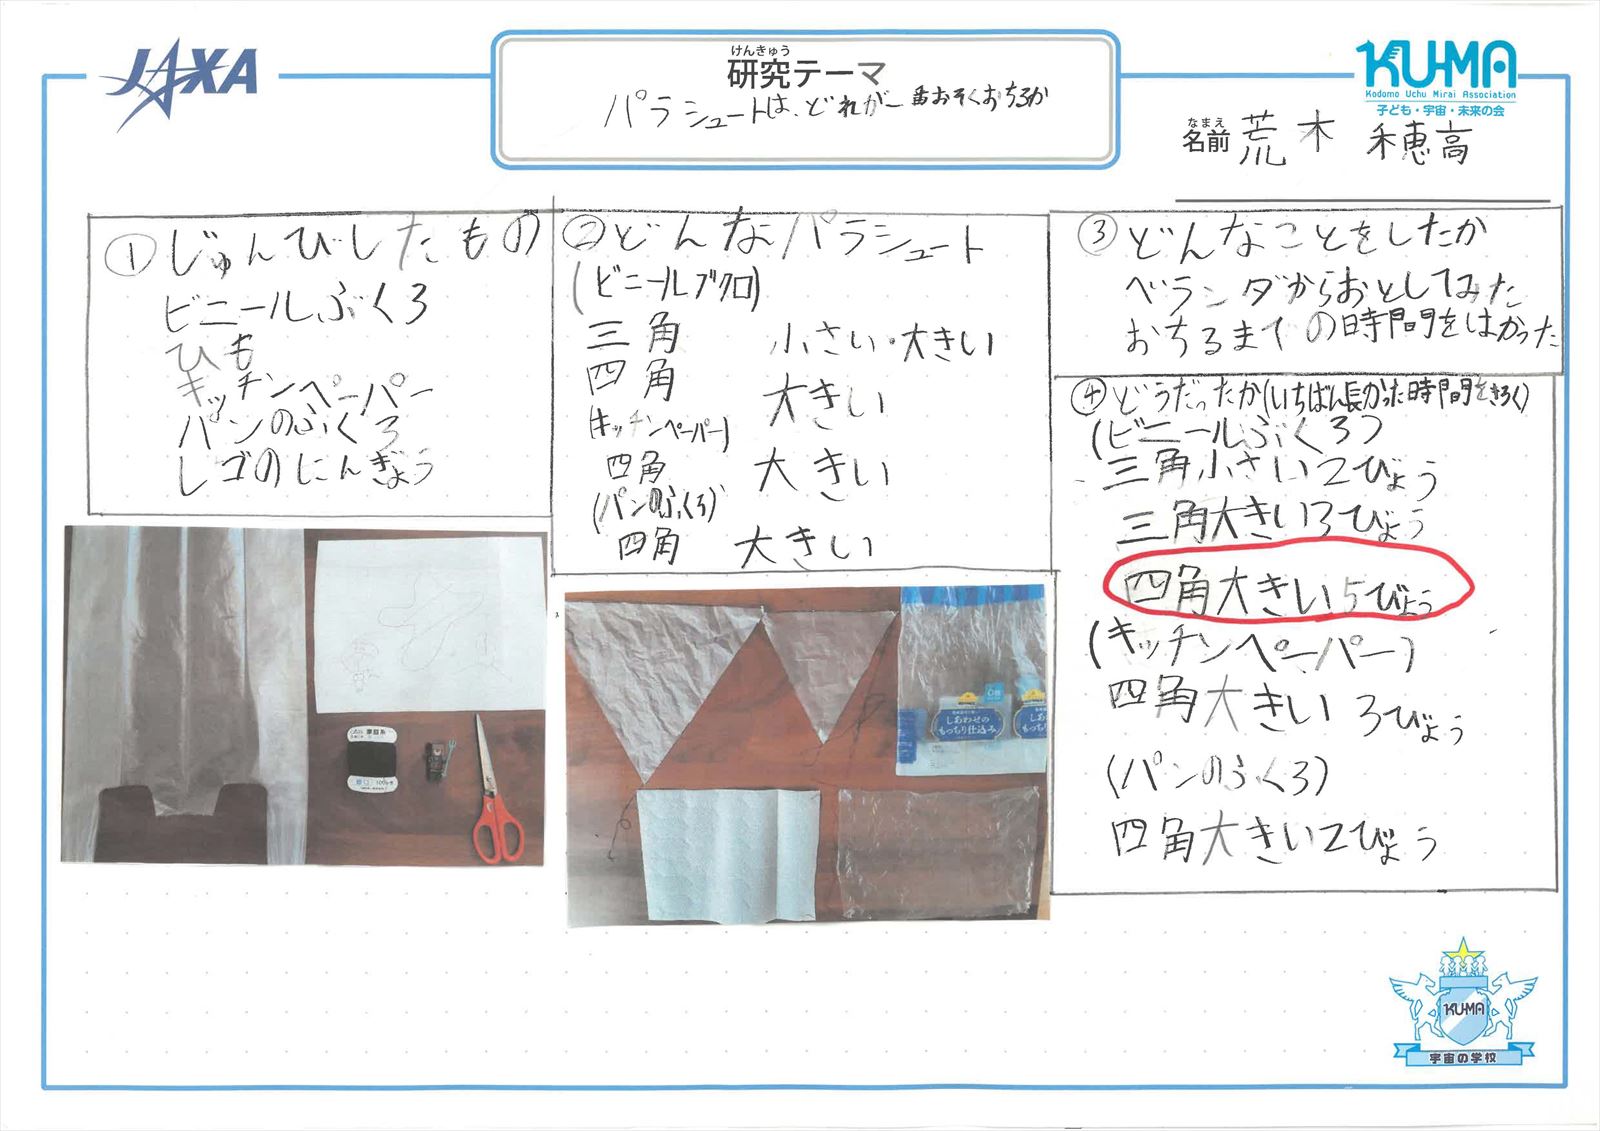 JAXA
けんきゅう
研究テーマ
パラシュートは、どれが一番おそくおちるか
KU-MA
Kodomo Uchu Mirai Association
子ども・宇宙・未来の会
なまえ
名前 荒木 穂高
① じゅんびしたもの
ビニールぶくろ
ひも
キッチンペーパー
パンのふくろ
レゴのにんぎょう
② どんなパラシュート
(ビニールブクロ)
三角 小さい・大きい
四角 大きい
(キッチンペーパー)
四角 大きい
(パンのふくろ)
四角 大きい
③ どんなことをしたか
ベランダからおとしてみた
おちるまでの時間をはかった
④ どうだったか(いちばん長かった時間をきろく)
(ビニールぶくろ)
三角小さい2びょう
三角大きい3びょう
四角大きい5びょう
(キッチンペーパー)
四角大きい 3びょう
(パンのふくろ)
四角大きい2びょう
家庭糸
しあわせの
もっちり仕込み
しあ
もっ
KU-MA
宇宙の学校